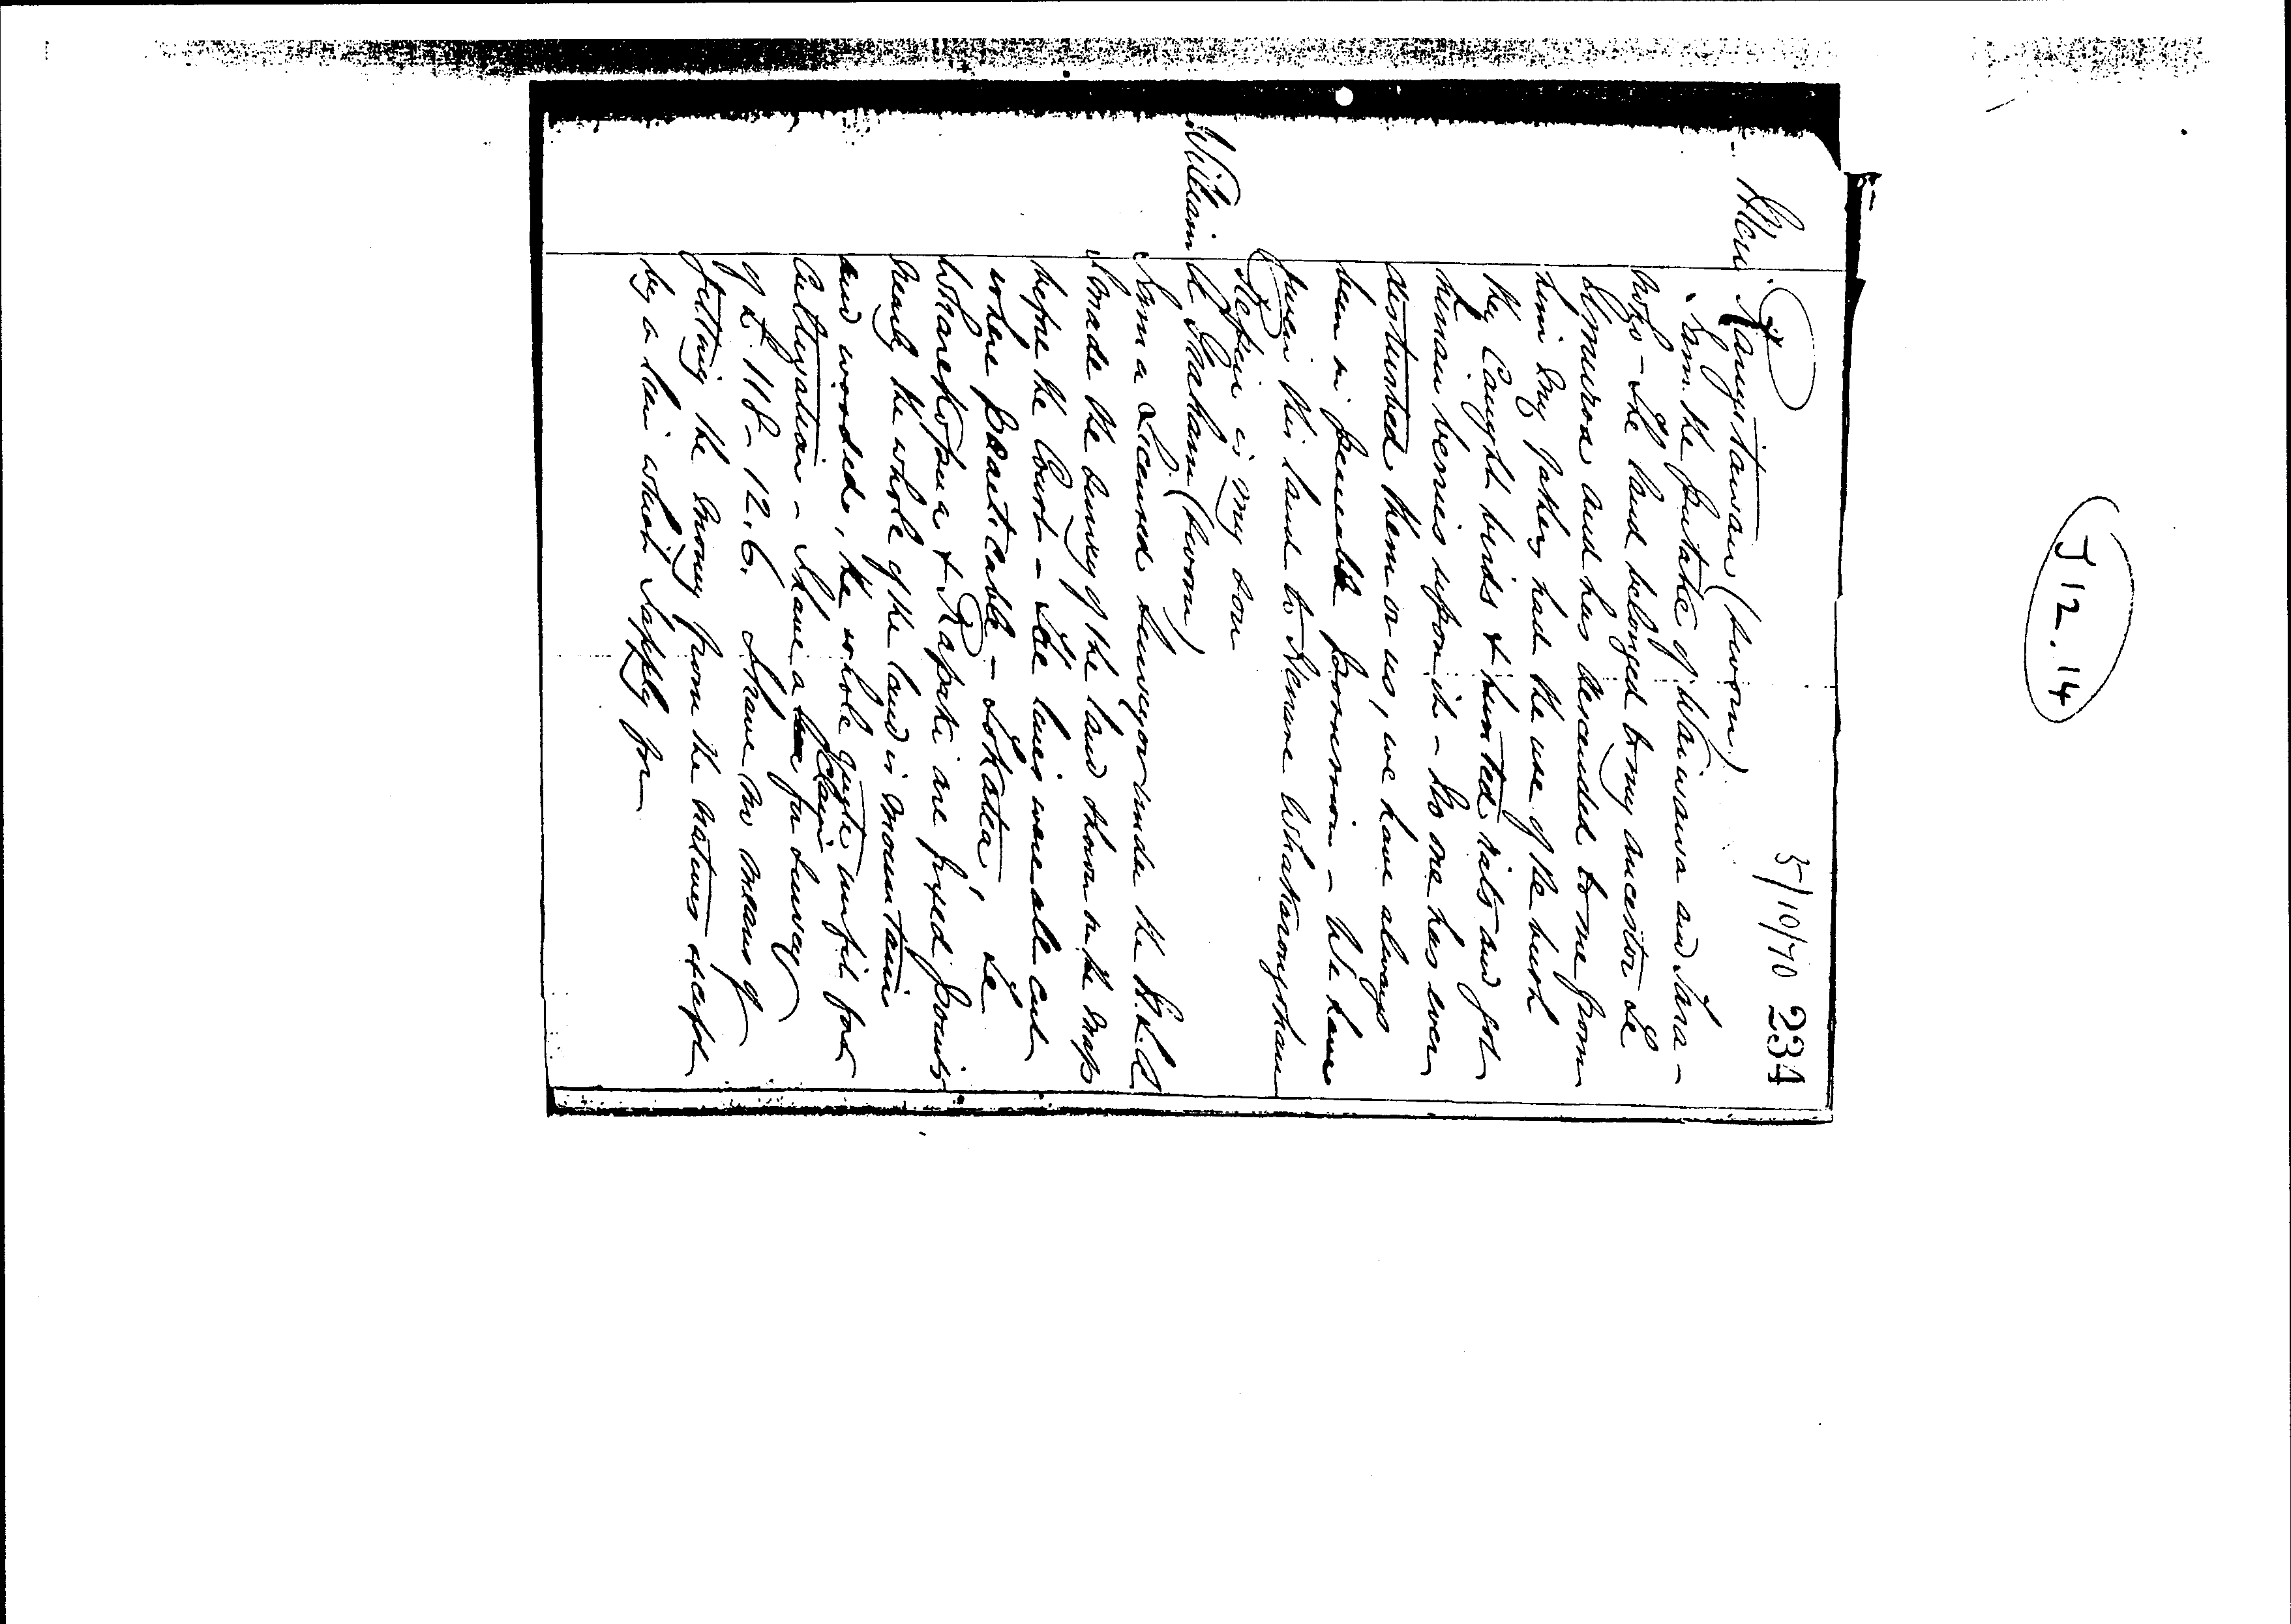 J 12.14
5/10/70 234
Meri Rangitawau (sworn)
I am the putake of Waiwawa and Tara-
hoko - The land belonged to my ancestor Te
and has descended to me from
him My father had the use of the bush
they Caught birds & hunted rats and got
hinau berries upon it - No one has ever
disturbed them or us, we have always
been in peaceable possession - We have
given this land to
is my son
William Graham (sworn)
I am a Licensed Surveyor under the N.L.C
I made the survey of the land shown on the map
before the Court - The lines were all cut
where practicable - Tokatea, Te
Wharekopua & Rapaki are fixed points
Nearly the whole of the land is mountain
and wooded, the whole quite unfit for
Cultivation - I have a claim for survey
of £118-12.6. I have no means of
getting the money from the natives except
by a lien which I apply for